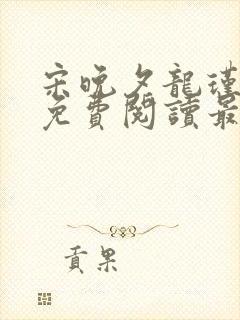 宋晚夕龍瑾
免費閱讀最
貢果